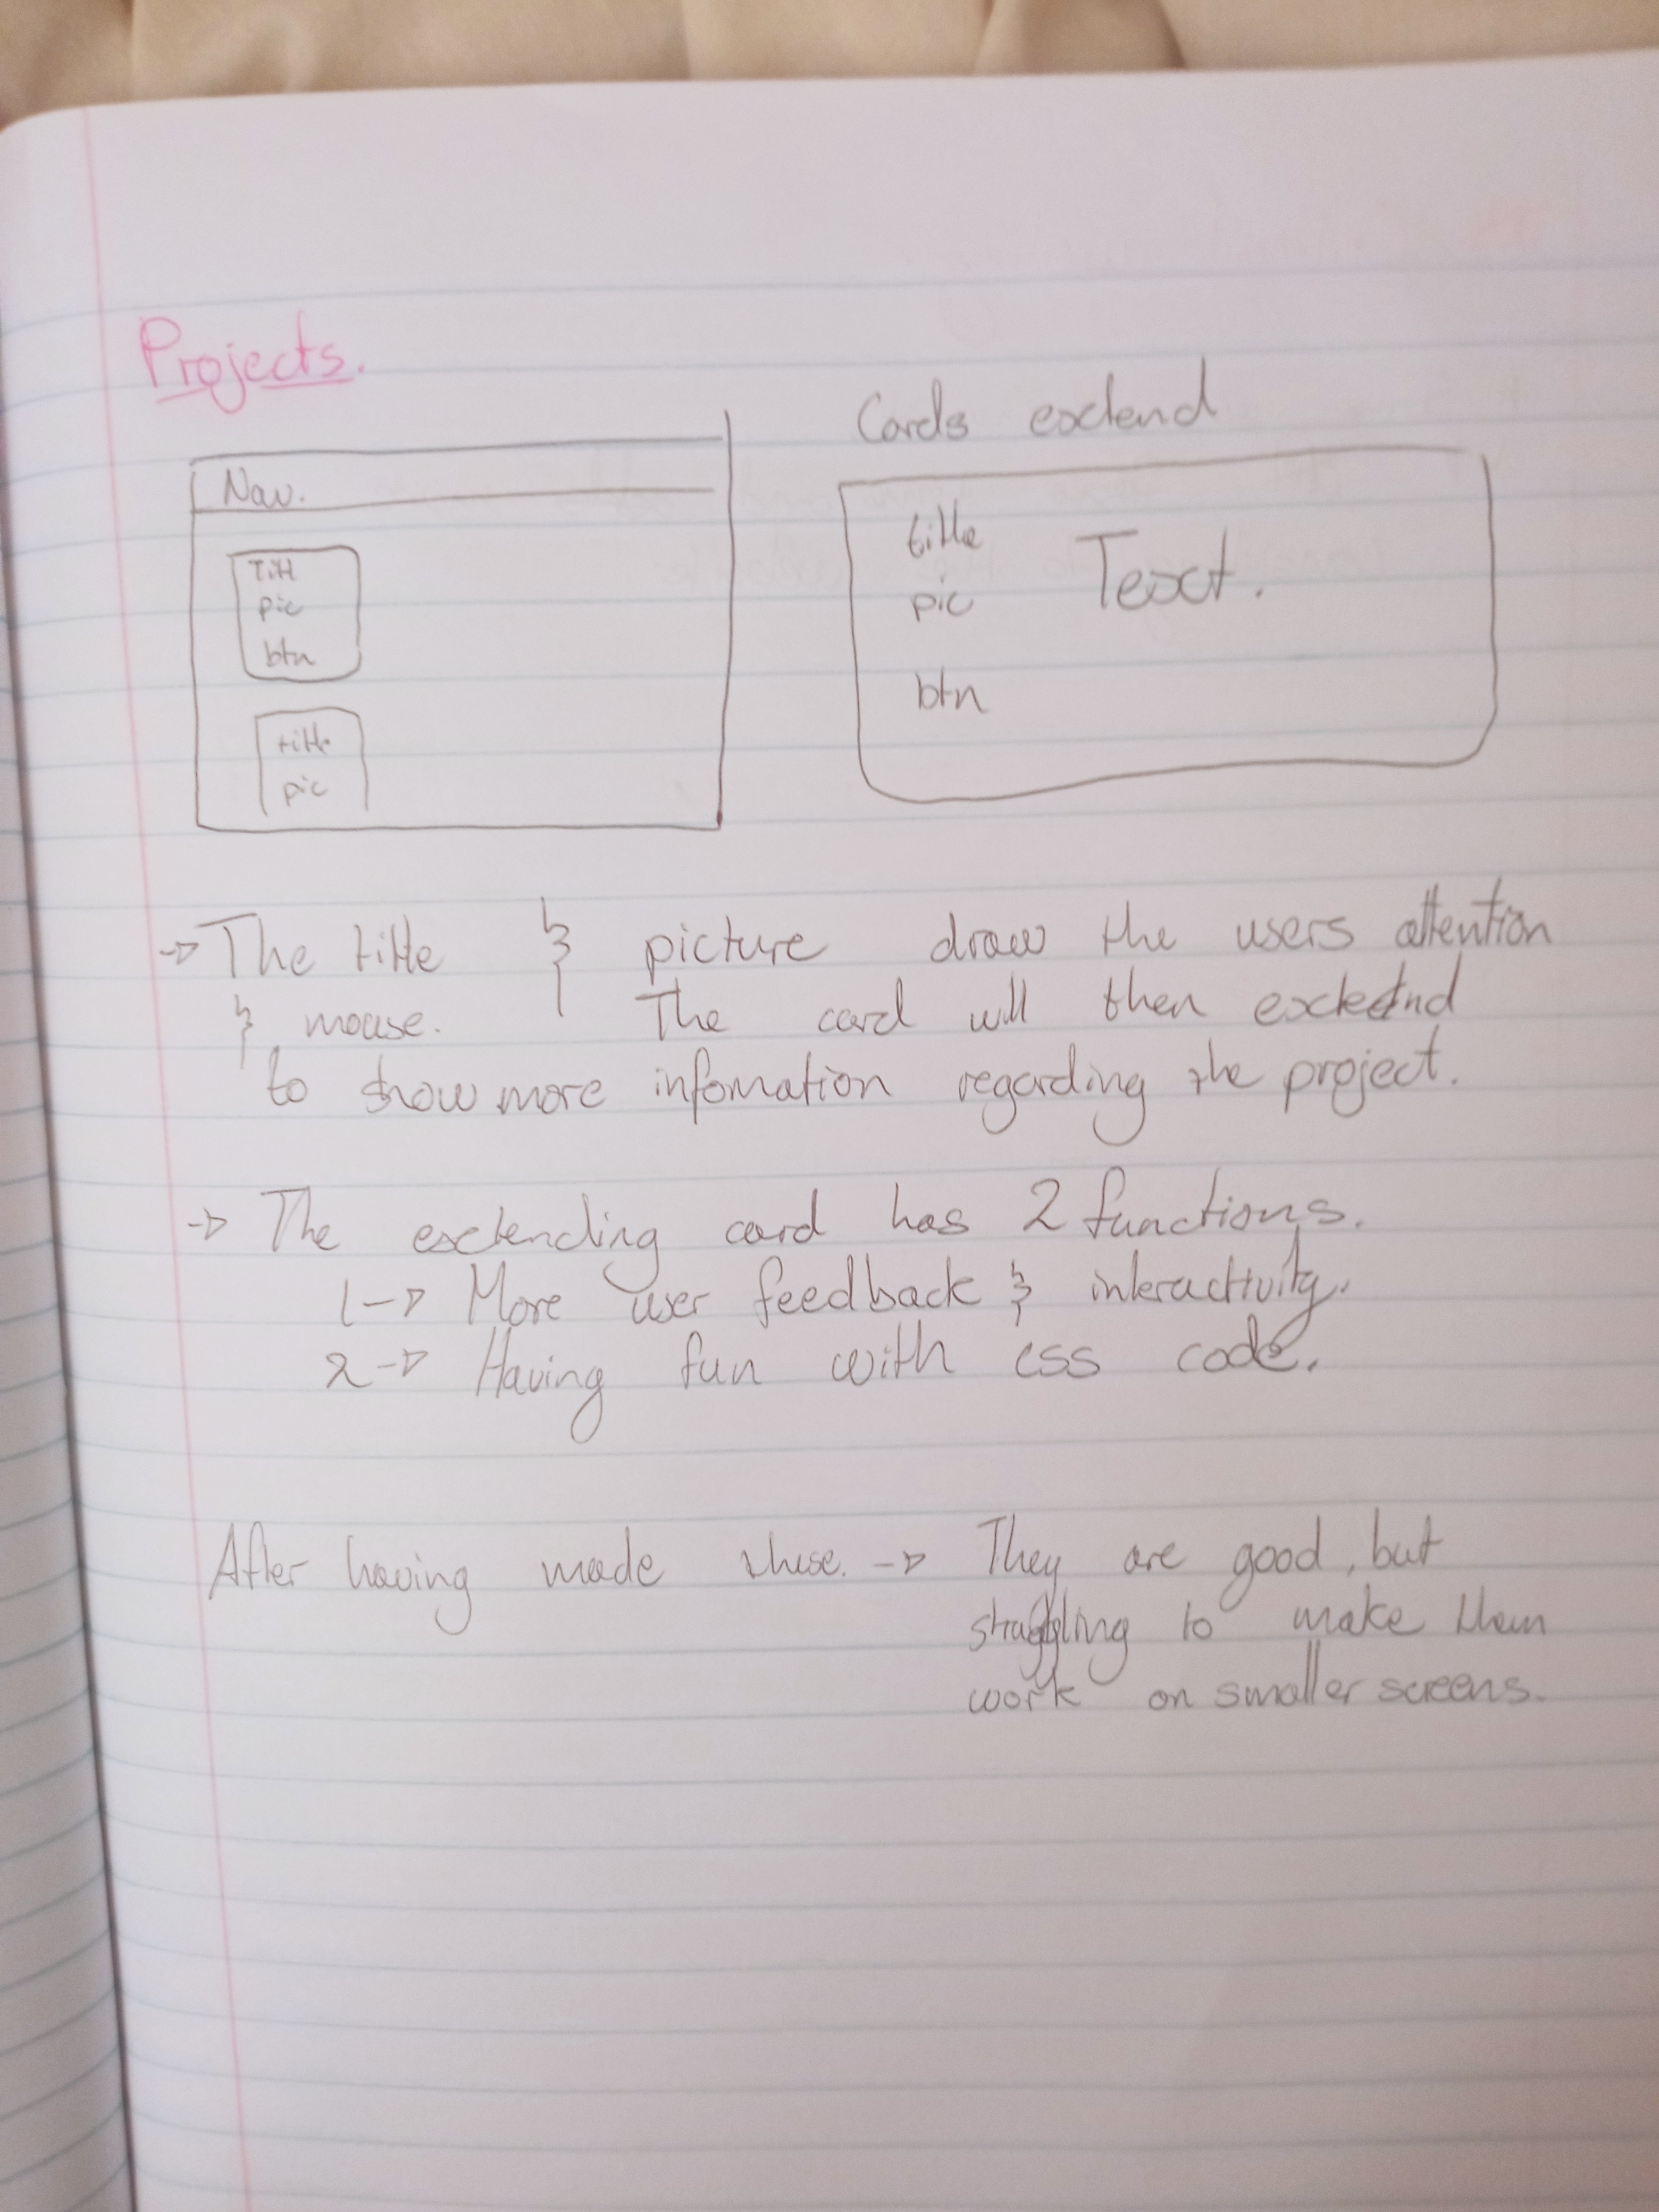 Projects.
Cards extend
Nav.
Titl
pic
btn
title
pic
title
pic
Text.
btn
→ The title & picture draw the users attention
& mouse. The card will then extend
to show more infomation regarding the project.
→ The extending card has 2 functions.
1→ More user feedback & interactivity.
2→ Having fun with css code.
After having made these. → They are good, but
struggling to make them
work on smaller screens.